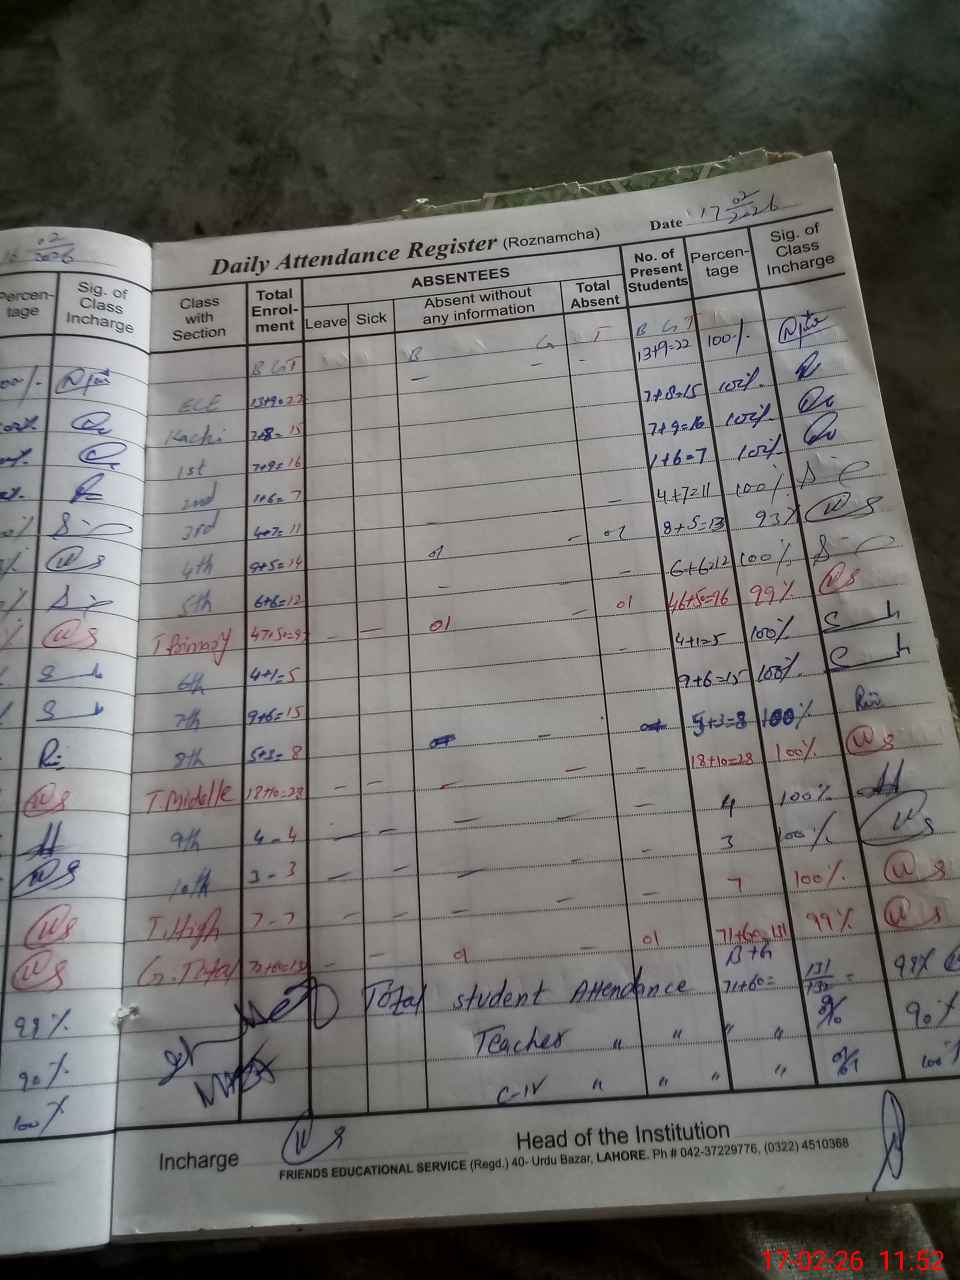 16 02/2026
Percentage
Sig. of Class Incharge
Daily Attendance Register (Roznamcha)
Date 17 02/2026
Class with Section
Total Enrolment
ABSENTEES
Leave
Sick
Absent without any information
Total Absent
No. of Present Students
Percentage
Sig. of Class Incharge
B G T B G T B G T
ECE 13+9=22 - - - 13+9=22 100%
Kachi 7+8=15 7+8=15 100%
1st 7+9=16 7+9=16 100%
2nd 1+6=7 1+6=7 100%
3rd 4+7=11 - - 4+7=11 100%
4th 9+5=14 01 - 01 8+5=13 93%
5th 6+6=12 - - 6+6=12 100%
T.Primary - - 01 - 01 99%
6th 4+1=5 - 4+1=5 100%
7th 9+6=15 9+6=15 100%
8th 5+3=8 - 5+3=8 100%
T.Middle 18+10=28 - - - - 18+10=28 100%
9th 4-4 - - - - 4 100%
10th 3-3 - - - - 3 100%
T.High 7-7 - - - 7 100%
G.Total - - - 01 71+60=131 99%
B+G
Total student Attendance 71+60= 131/132 =
99%
Teacher " " " " 90%
90%
C-IV " " " " 100%
100%
Incharge
Head of the Institution
FRIENDS EDUCATIONAL SERVICE (Regd.) 40- Urdu Bazar, LAHORE. Ph # 042-37229776, (0322) 4510368
17-02-26 11:52